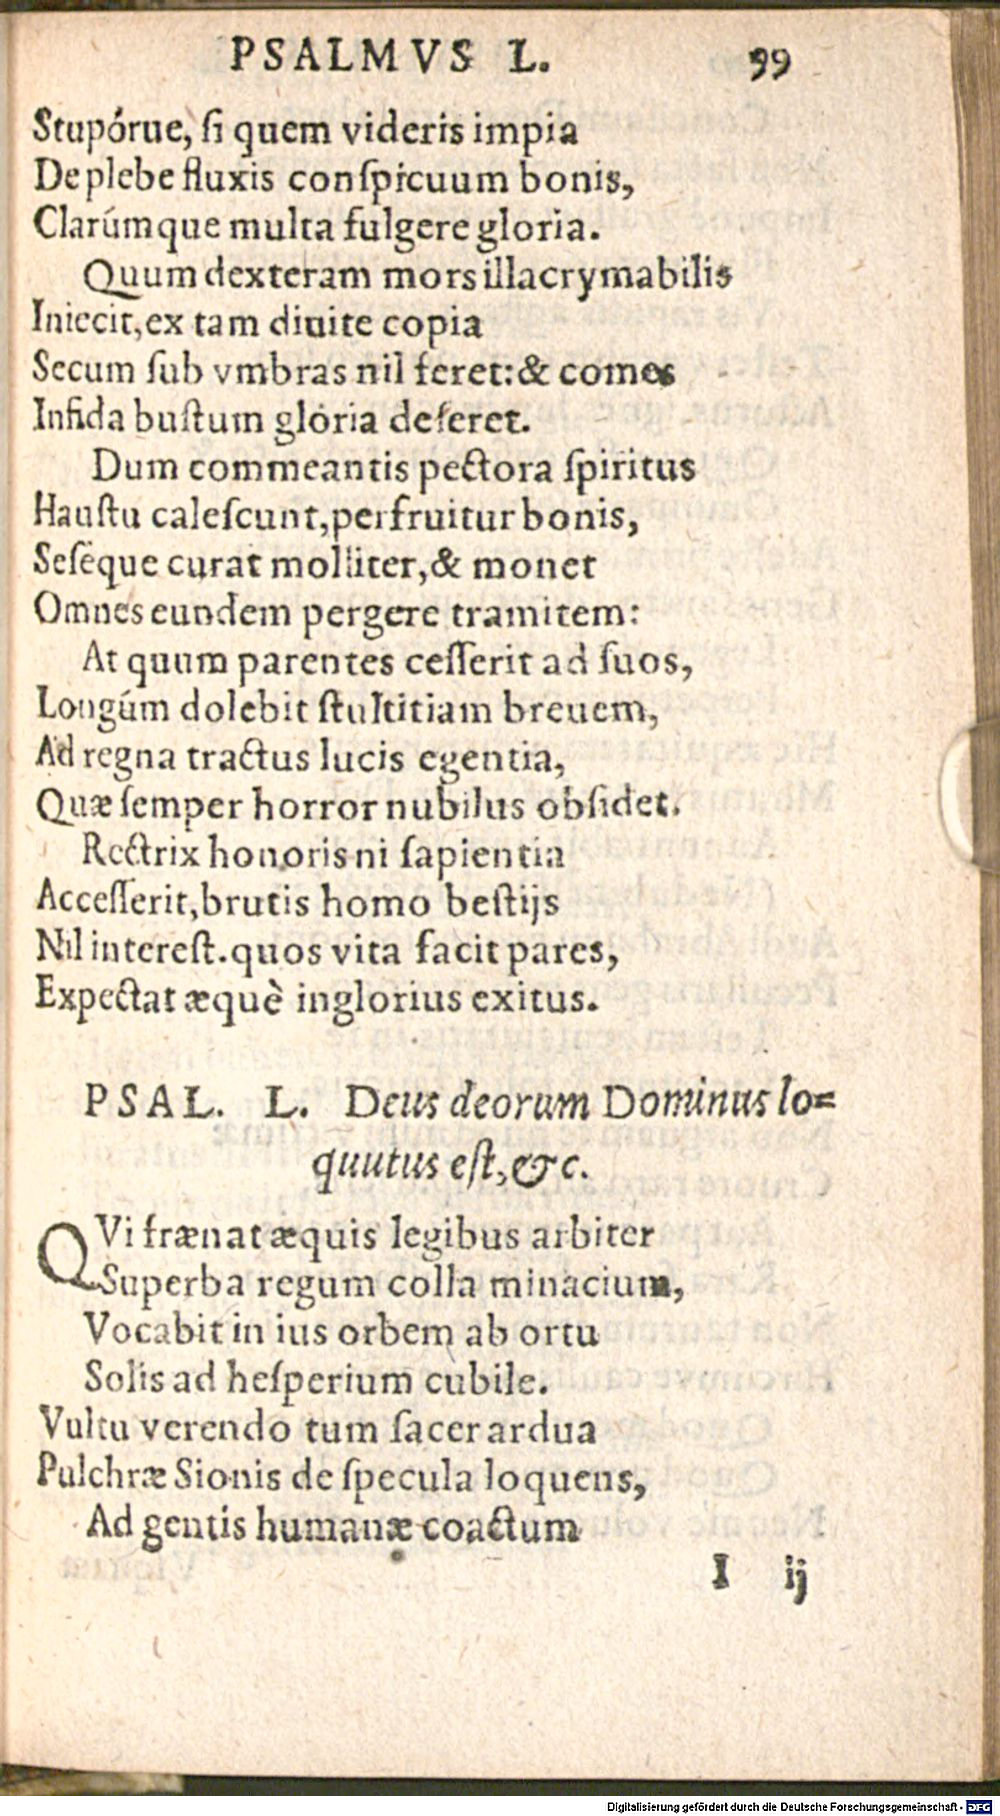 PSALMVS L. 99
Stupórue, ſi quem videris impia
De plebe fluxis conſpicuum bonis,
Clarúmque multa fulgere gloria.
Quum dexteram mors illacrymabilis
Iniecit, ex tam diuite copia
Secum ſub vmbras nil feret: & comes
Infida buſtum gloria deſeret.
Dum commeantis pectora ſpiritus
Hauſtu caleſcunt, perfruitur bonis,
Seſéque curat molliter, & monet
Omnes eundem pergere tramitem:
At quum parentes ceſſerit ad ſuos,
Longúm dolebit ſtultitiam breuem,
Ad regna tractus lucis egentia,
Quæ ſemper horror nubilus obſidet.
Rectrix honoris ni ſapientia
Acceſſerit, brutis homo beſtijs
Nil intereſt. quos vita facit pares,
Expectat æquè inglorius exitus.
PSAL. L. Deus deorum Dominus lo=
quutus eſt, &c.
QVi frænat æquis legibus arbiter
Superba regum colla minacium,
Vocabit in ius orbem ab ortu
Solis ad heſperium cubile.
Vultu verendo tum ſacer ardua
Pulchræ Sionis de ſpecula loquens,
Ad gentis humanæ coactum
I ij
Digitalisierung gefördert durch die Deutsche Forschungsgemeinschaft - DFG